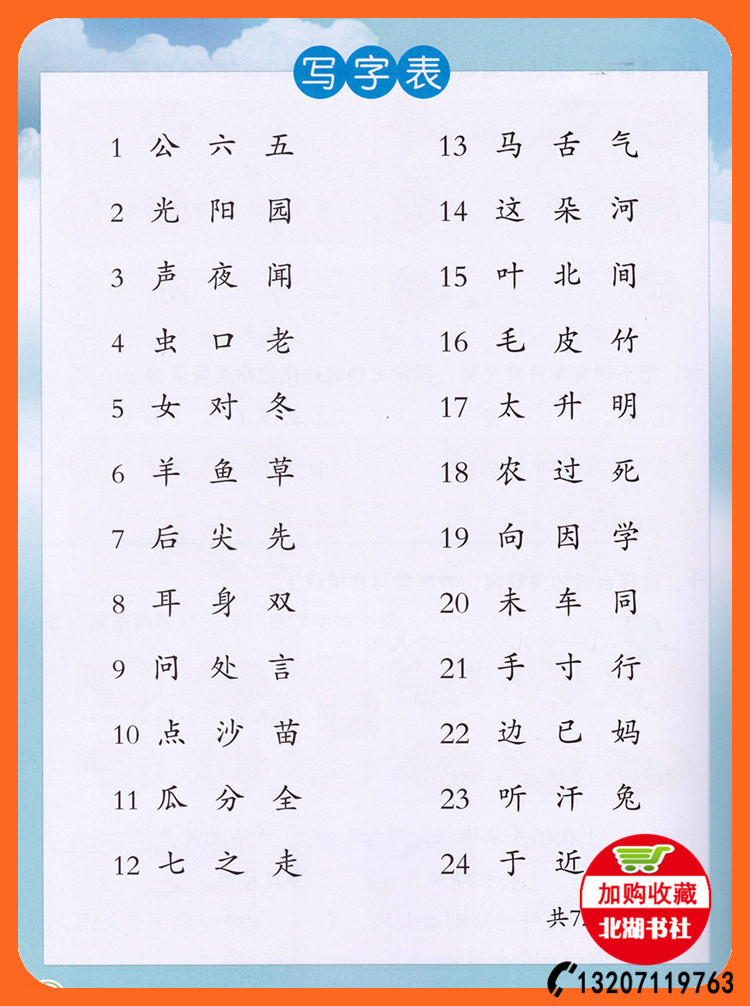 写字表
1 公 六 五
2 光 阳 园
3 声 夜 闻
4 虫 口 老
5 女 对 冬
6 羊 鱼 草
7 后 尖 先
8 耳 身 双
9 问 处 言
10 点 沙 苗
11 瓜 分 全
12 七 之 走
13 马 舌 气
14 这 朵 河
15 叶 北 间
16 毛 皮 竹
17 太 升 明
18 农 过 死
19 向 因 学
20 未 车 同
21 手 寸 行
22 边 已 妈
23 听 汗 兔
24 于 近
共7
加购收藏
北湖书社
13207119763